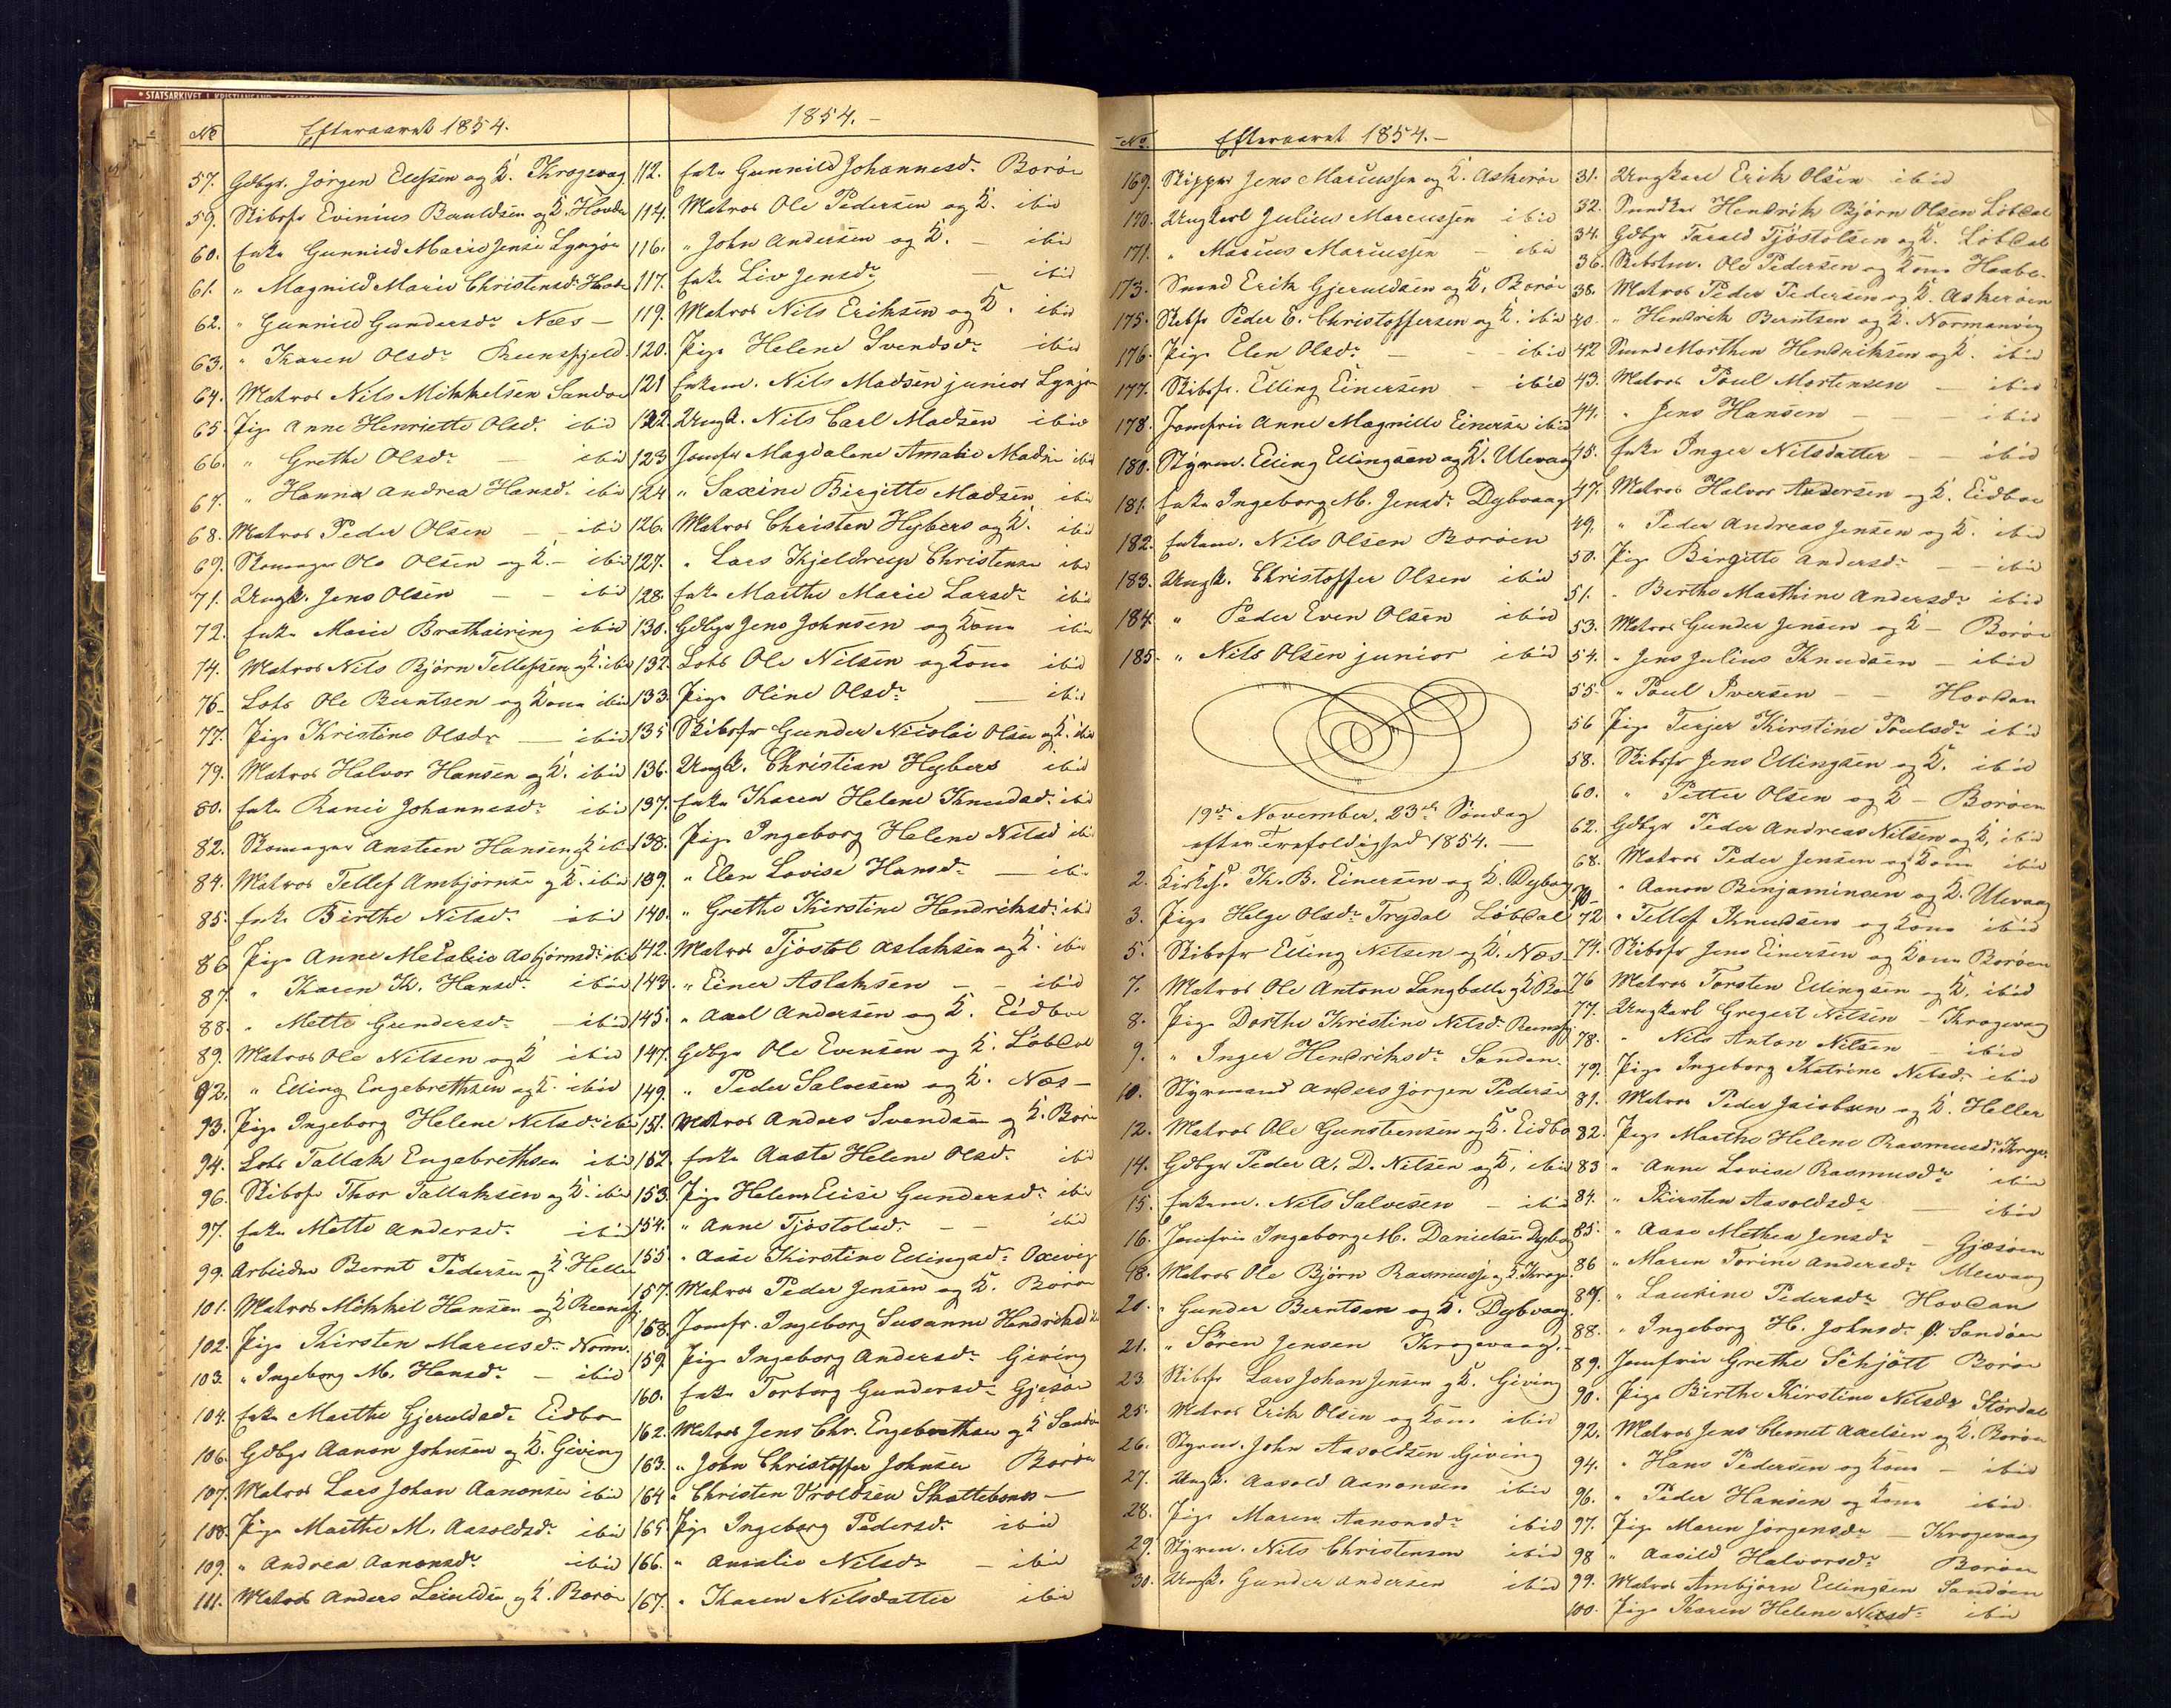 * STATSARKIVET I KRISTIANSAND *
No Efteraaret 1854.
57. Gdbgr. Jörgen Elefsen og K. Krogevag
59. Skibsfr Evinius Bernldsen og K. Hovda
60. Enke Gunnild Marie Jensd Lyngör
61. " Magnild Marie Christensdr
62. " Gunnild Gundersdr Næs
63. " Karen Olsdr Reensfjeld
64. Matros Nils Mikkelsen Sandø
65. Pige Anne Henriette Olsd. ibid
66. " Grethe Olsdr ibid
67. " Hanna Andrea Hansd. ibid
68. Matros Peder Olsen ibid
69. Skomager Ole Olsen og K. ibid
71. Ungk. Jens Olsen ibid
72. Enke Marie Brathairing ibid
74. Matros Nils Björn Tellefsen og K. ibid
76. Lods Ole Berntsen og Kone ibid
77. Pige Kristine Olsdr ibid
79. Matros Halvor Hansen og K. ibid
80. Enke Ranei Johannesdr ibid
82. Skomager Ansteen Hansen og K ibid
84. Matros Tellef Ambjörnse og K. ibid
85. Enke Birthe Nilsdr ibid
86. Pige Anne Metalie Asbjörnsdr ibid
87. " Karen K. Hansdr ibid
88. " Mette Gundersdr ibid
89. Matros Ole Nilsen og K ibid
92. " Elling Engebrethsen og K. ibid
93. Pige Ingeborg Helene Nilsdr ibid
94. Lods Tallak Engebrethsen ibid
96. Skibsfr Thor Tallaksen og K. ibid
97. Enke Mette Andersdr ibid
99. Arbeider Bernt Pedersen og K. Heller
101. Matros Mikkel Hansen og K Reensf
102. Pige Kirsten Marcusdr Norm.
103. " Ingeborg M. Hansdr ibid
104. Enke Marthe Gjeruldsdr Eidbo
106. Gdbgr Aanon Johnsen og K. Giving
107. Matros Lars Johan Aanonsen ibid
108. Pige Marthe M. Aasoldsdr ibid
109. " Andrea Aanonsdr ibid
111. Matros Anders Leiulds og K. Borøe
1854.
112. Enke Gunnild Johannesdr Borøe
114. Matros Ole Pedersen og K. ibid
116. " John Andersen og K. ibid
117. Enke Liv Jensdr ibid
119. Matros Nils Eriksen og K. ibid
120. Pige Helene Svendsdr ibid
121 Enkem. Nils Madsen junior Lyngör
122. Ungk. Nils Carl Madsen ibid
123 Jomfr Magdalene Amalie Madsen ibid
124 " Saxine Birgitte Madsen ibid
126. Matros Christen Hybers og K. ibid
127. " Lars Kjeldrup Christense ibid
128. Enke Marthe Marie Larsdr ibid
130. Gdbgr Jens Johnsen og Kone ibid
132. Lods Ole Nilsen og Kone ibid
133. Pige Oline Olsdr ibid
135 Skibsfr Gunder Nicolai Olsen og K. ibid
136. Ungk. Christian Hybers ibid
137. Enke Karen Helene Knudsd. ibid
138. Pige Ingeborg Helene Nilsd ibid
139. " Elen Lovise Hansdr ibid
140. " Grethe Kirstine Hendriksd. ibid
142. Matros Tjöstol Aslaksen og K. ibid
143. " Einer Aslaksen ibid
145. " Axel Andersen og K. Eidboe
147. Gdbgr Ole Evensen og K. Löbdal
149. " Peder Salvesen og K. Næs
151. Matros Anders Svendsen og K. Borø
152. Enke Aaste Helene Olsdr ibid
153. Pige Helene Elise Gundersdr ibid
154. " Anne Tjostolsdr ibid
155 " Aase Kirstine Ellingsdr Oxevig
157. Matros Peder Jensen og K. Borøe
158. Jomfr. Ingeborg Susanne Hendriksd
159. Pige Ingeborg Andersdr Giving
160. Enke Torborg Gundersdr Gjesöe
162. Matros Jens Chr. Engebrethsen og K Sandø
163. " John Christoffer Johnsen Borøe
164 " Christen Vroldsen Skattebonæs
165 Pige Ingeborg Pedersdr ibid
166. " Amalie Nilsdr ibid
167. " Karen Nilsdatter ibid
No. Efteraaret 1854.
169. Skipper Jens Marcussen og K. Askerøe
170. Ungkarl Julius Marcussen ibid
171. " Marcus Marcussen ibid
173. Smed Erik Gjeruldsen og K. Borøe
175. Skbfr Peder C. Christoffersen og K. ibid
176. Pige Elen Olsdr ibid
177. Skibsfr. Elling Einersen ibid
178. Jomfrü Anne Magnille Einerse ibid
180. Styrm. Elling Ellingsen og K. Ulevaag
181. Enke Ingeborg M. Jensdr Dybvaag
182. Enkem. Nils Olsen Borøen
183. Ungk. Christoffer Olsen ibid
184. " Peder Even Olsen ibid
185. " Nils Olsen junior ibid
19de November, 23de Söndag
efter Trefoldighed 1854.
2. Kirkes. Th. B. Einersen og K. Dybvag
3. Pige Helge Olsdr Trydal Löbdal
5. Skibsfr Elling Nilsen og K. Næs
7. Matros Ole Antone Langballe og K Bo
8. Pige Dorthe Kristine Nilsdr Reensfj
9. " Inger Hendriksdr Sanden
10. Styrmand Anders Jörgen Pedersen
12. Matros Ole Gunsteensen og K. Eidbo
14. Gdbgr Peder A. D. Nilsen og K, ibid
15. Enkem. Nils Salvesen ibid
16. Jomfrü Ingeborg M. Danielsen Dybvag
18. Matros Ole Björn Rasmusse og K. Kroge
20. " Gunder Berntsen og K. Dybvaag.
21. " Sören Jensen Krogevaag.
23. Skibsfr Lars Johan Jensen og K. Giving
25. Matros Erik Olsen og Kone ibid
26. Styrm. John Aasoldsen Giving
27. Ungk. Aasold Aanonsen ibid
28. Pige Maren Aanonsdr ibid
29. Styrm. Nils Christensen ibid
30. Ungk. Gunder Andersen ibid
31. Ungkarl Erik Olsen ibid
32. Hendrik Björn Olsen Löbdal
34. Gdbgr Tarald Tjöstolsen og K. Löbdal
36. Skibstm. Ole Pedersen og Kone Haabe
38. Matros Peder Pedersen og K. Askerøen
40. " Hendrik Berntsen og K. Normanvig
42 Smed Morthen Hendriksen og K. ibid
43. Matros Poul Mortensen ibid
44. " Jens Hansen ibid
45. Enke Inger Nilsdatter ibid
47. Matros Halvor Andersen og K. Eidboe
49. " Peder Andreas Jensen og K. ibid
50. Pige Birgitte Andersdr ibid
51. " Berthe Marthine Andersdr ibid
53. Matros Gunder Jensen og K Borøe
54. " Jens Julius Knudsen ibid
55. " Poul Iversen Hovdan
56 Pige Terjer Kirstine Poulsdr ibid
58. Skibsfr Jens Ellingsen og K. ibid
60. " Petter Olsen og K Borøen
62. Gdbgr Peder Andreas Nilsen og K, ibid
68. Matros Peder Jensen og Kone ibid
70 " Aanon Benjaminsen og K. Ulevaag
72 " Tellef Knudsen og Kone ibid
74. Skibsfr Jens Einersen og Kone Borøen
76 Matros Torsten Ellingsen og K. ibid
77. Ungkarl Gregert Nilsen Krogevaag
78. " Nils Anton Nilsen ibid
79. Pige Ingeborg Katrine Nilsdr ibid
81. Matros Peder Jacobsen og K. Heller
82. Pige Marthe Helene Rasmusdr Kroge
83 " Anne Lovise Rasmusdr ibid
84. " Kirsten Aasoldsdr ibid
85. " Aase Mathea Jensdr Gjæsöen
86 " Maren Torine Andersdr Ulevaag
87. " Laurine Pedersdr Hovdan
88. " Ingeborg H. Johnsdr Sandøen
89. Jomfrü Grethe Schjött Borøe
90. Pige Birthe Kirstine Nilsdr Stördal
92. Matros Jens Clemet Axelsen og K. Borøe
94. " Hans Pedersen og Kone ibid
96. " Peder Hansen og Kone ibid
97. Pige Maren Jörgensdr Krogevaag
98 " Aasild Halvorsdr Borøen
99. Matros Ambjörn Ellingsen Sandøen
100. Pige Karen Helene Nilsdr ibid